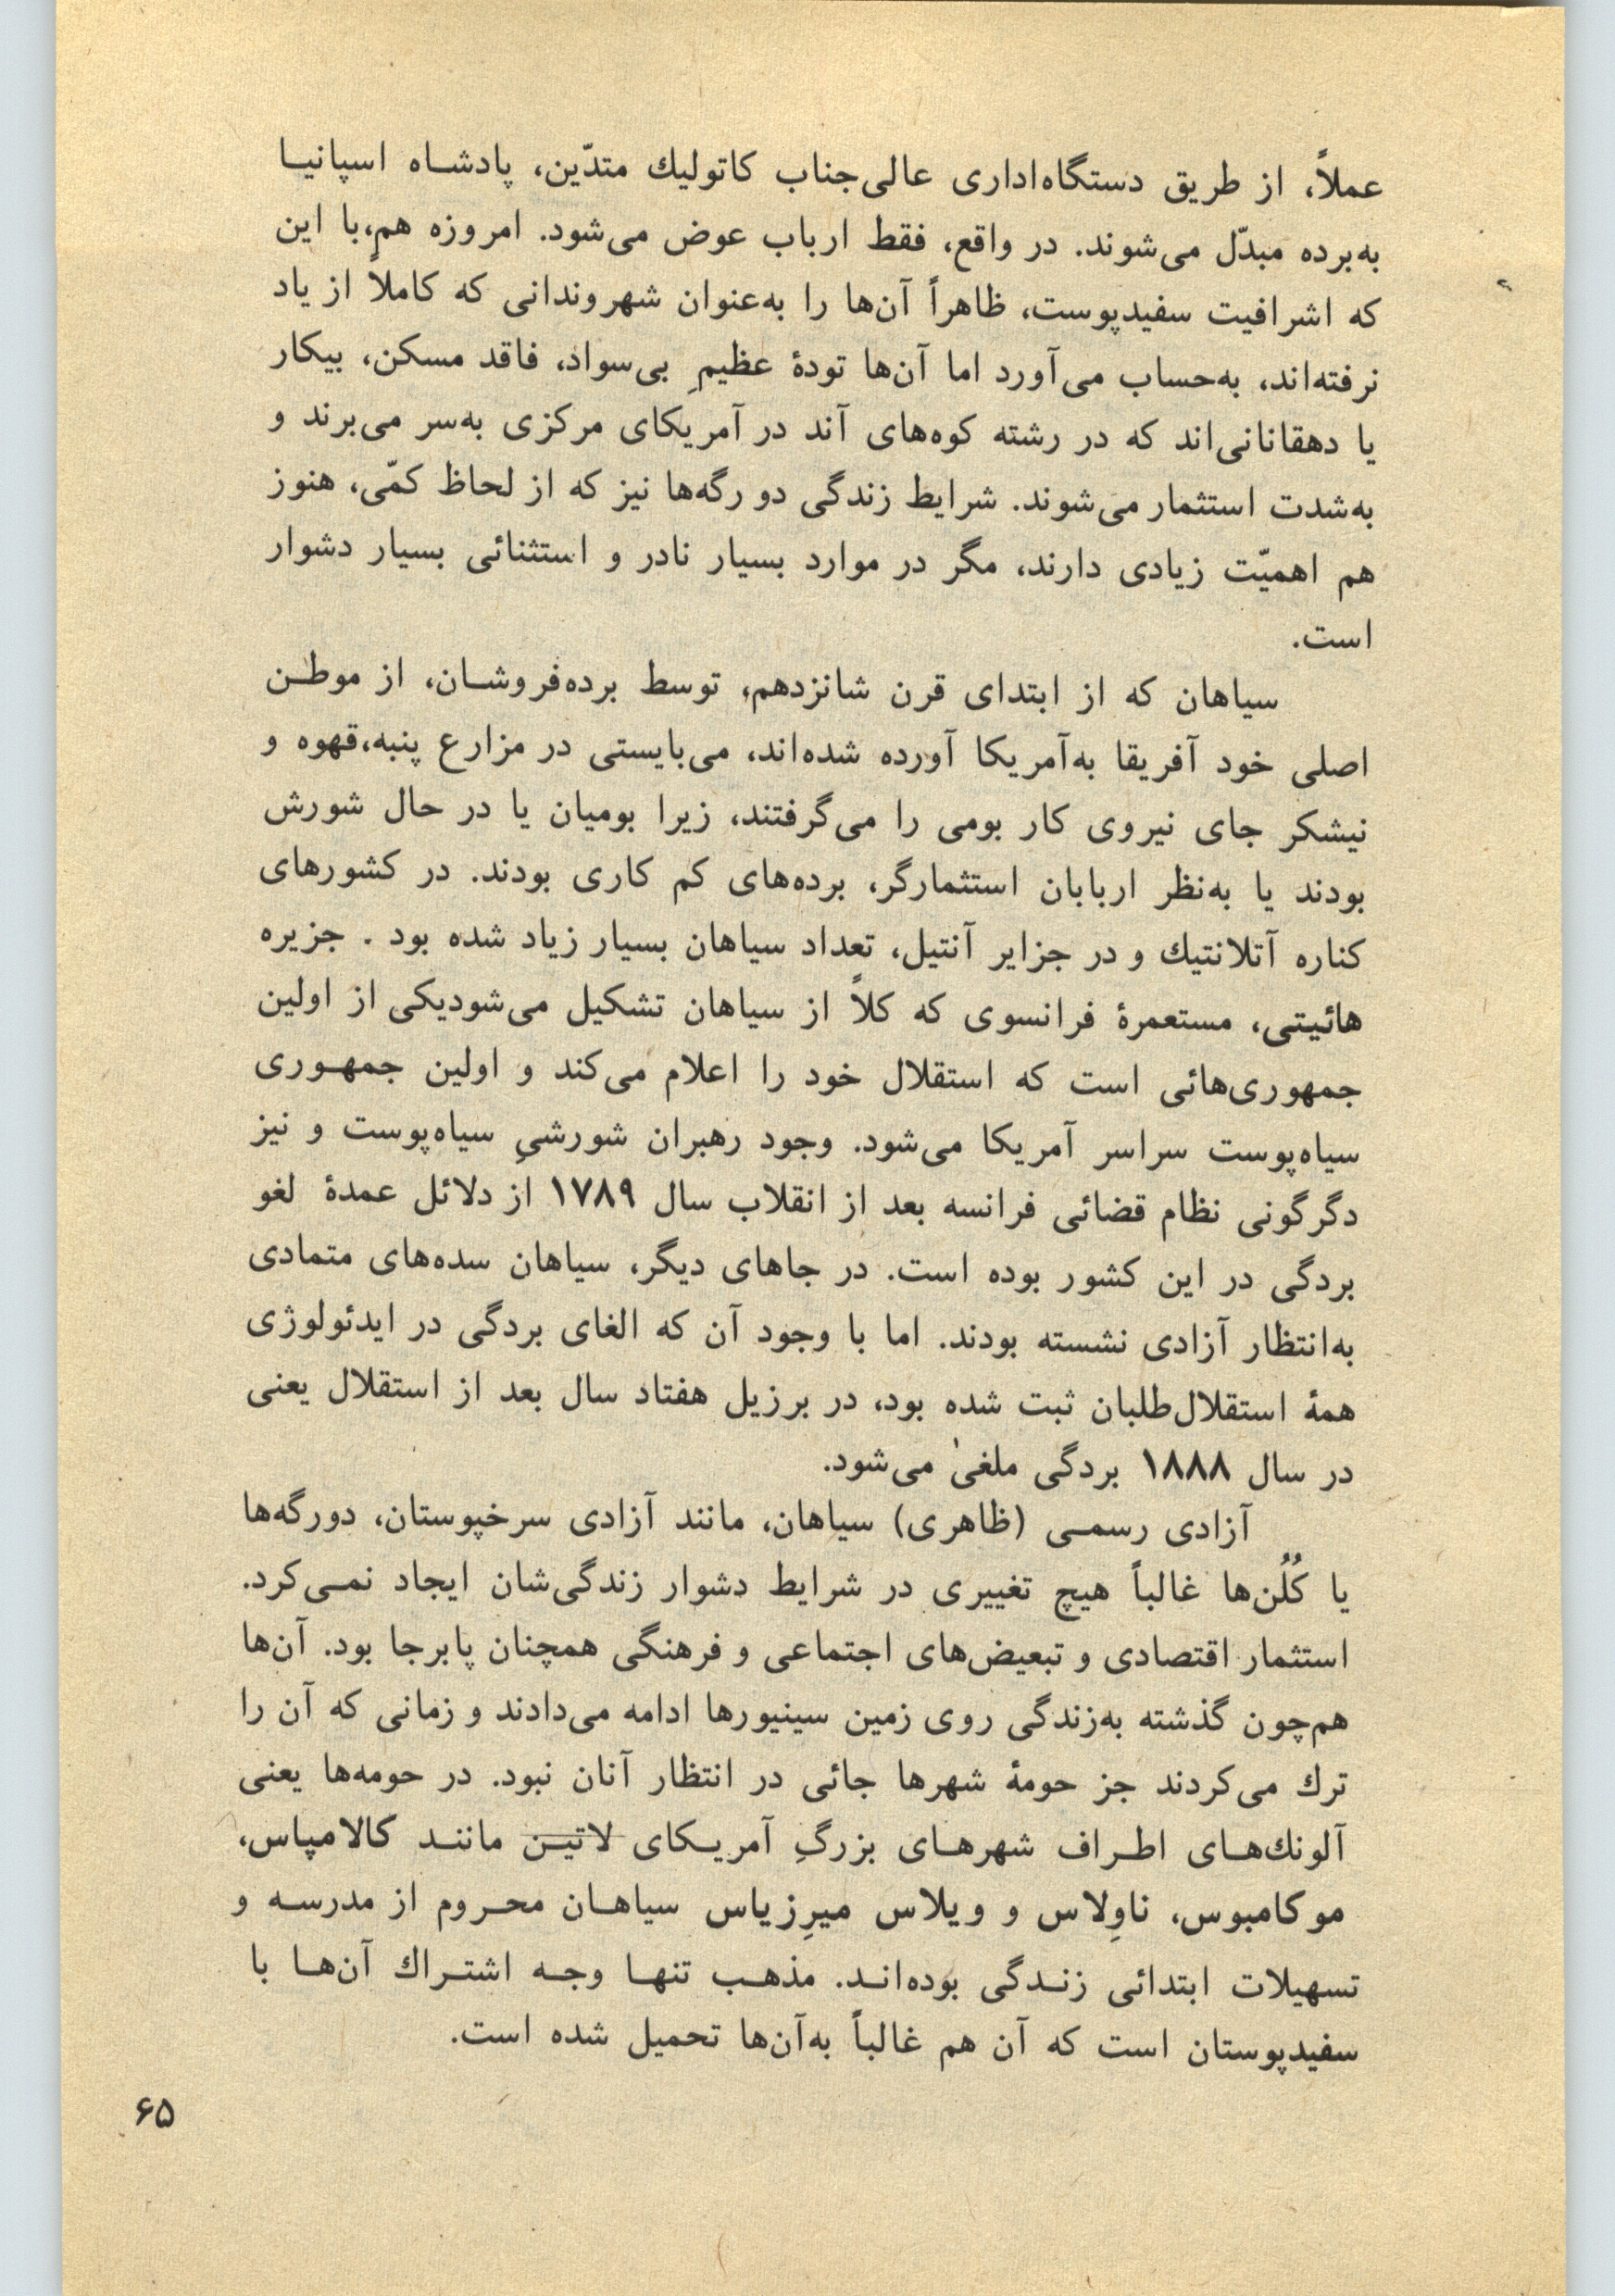 عملاً، از طریق دستگاه‌اداری عالی‌جناب کاتولیك متدّین، پادشـاه اسپانیـا
به‌برده مبدّل می‌شوند. در واقع، فقط ارباب عوض می‌شود. امروزه هم،با این
که اشرافیت سفیدپوست، ظاهراً آن‌ها را به‌عنوان شهروندانی که کاملاً از یاد
نرفته‌اند، به‌حساب می‌آورد اما آن‌ها تودهٔ عظیمِ بی‌سواد، فاقد مسکن، بیکار
یا دهقانانی‌اند که در رشته کوه‌های آند در آمریکای مرکزی به‌سر می‌برند و
به‌شدت استثمار می‌شوند. شرایط زندگی دو رگه‌ها نیز که از لحاظ کمّی، هنوز
هم اهمیّت زیادی دارند، مگر در موارد بسیار نادر و استثنائی بسیار دشوار
است.
سیاهان که از ابتدای قرن شانزدهم، توسط برده‌فروشـان، از موطـن
اصلی خود آفریقا به‌آمریکا آورده شده‌اند، می‌بایستی در مزارع پنبه،قهوه و
نیشکر جای نیروی کار بومی را می‌گرفتند، زیرا بومیان یا در حال شورش
بودند یا به‌نظر اربابان استثمارگر، برده‌های کم کاری بودند. در کشورهای
کناره آتلانتیك و در جزایر آنتیل، تعداد سیاهان بسیار زیاد شده بود . جزیره
هائیتی، مستعمرهٔ فرانسوی که کلاً از سیاهان تشکیل می‌شودیکی از اولین
جمهوری‌هائی است که استقلال خود را اعلام می‌کند و اولین جمهـوری
سیاه‌پوست سراسر آمریکا می‌شود. وجود رهبران شورشیِ سیاه‌پوست و نیز
دگرگونی نظام قضائی فرانسه بعد از انقلاب سال ۱۷۸۹ از دلائل عمدهٔ لغو
بردگی در این کشور بوده است. در جاهای دیگر، سیاهان سده‌های متمادی
به‌انتظار آزادی نشسته بودند. اما با وجود آن که الغای بردگی در ایدئولوژی
همهٔ استقلال‌طلبان ثبت شده بود، در برزیل هفتاد سال بعد از استقلال یعنی
در سال ۱۸۸۸ بردگی ملغیٰ می‌شود.
آزادی رسمـی (ظاهری) سیاهان، مانند آزادی سرخپوستان، دورگه‌ها
یا کُلُن‌ها غالباً هیچ تغییری در شرایط دشوار زندگی‌شان ایجاد نمـی‌کرد.
استثمار اقتصادی و تبعیض‌های اجتماعی و فرهنگی همچنان پابرجا بود. آن‌ها
هم‌چون گذشته به‌زندگی روی زمین سینیورها ادامه می‌دادند و زمانی که آن را
ترك می‌کردند جز حومهٔ شهرها جائی در انتظار آنان نبود. در حومه‌ها یعنی
آلونك‌هـای اطـراف شهرهـای بزرگِ آمریـکای لاتیـن ماننـد کالامپاس،
موکامبوس، ناوِلاس و ویلاس میرِزیاس سیاهـان محـروم از مدرسـه و
تسهیلات ابتدائی زنـدگی بوده‌انـد. مذهـب تنهـا وجـه اشتـراك آن‌هـا با
سفیدپوستان است که آن هم غالباً به‌آن‌ها تحمیل شده است.
۶۵